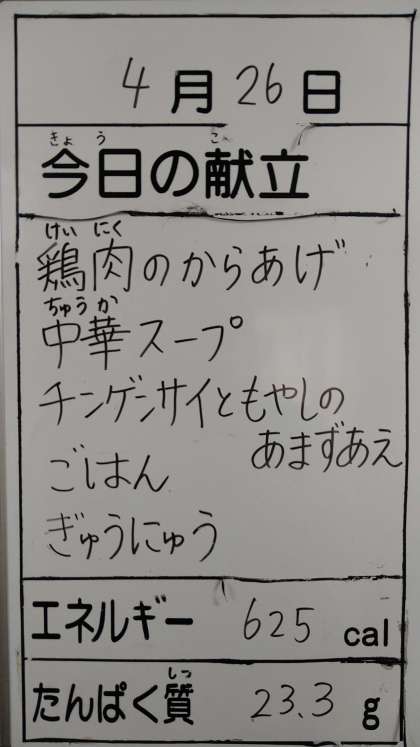 4月26日
きょう こ
今日の献立
けいにく
鶏肉のからあげ
ちゅうか
中華スープ
チンゲンサイともやしの
あまずあえ
ごはん
ぎゅうにゅう
エネルギー 625 cal
しつ
たんぱく質 23.3 g